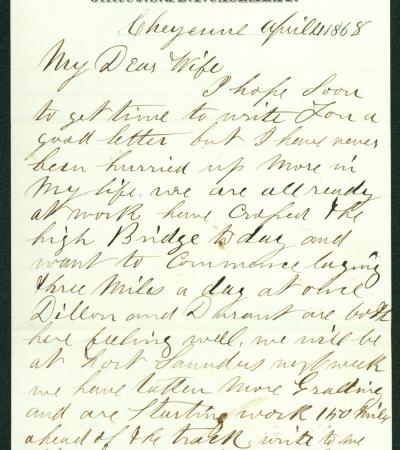 Cheyenne April 21 1868
My Dear Wife
I hope Soon
to get time to write You a
good letter but I have never
been hurried up More in
My life. we are all ready
at work have Crosed the
high Bridge to day and
want to Commence laying
three Miles a day at once
Dillon and Durant are both
here feeling well, we will be
at Fort Saunders next week
we have taken More Grading
and are Starting work 150 Miles
ahead of the track, write to me